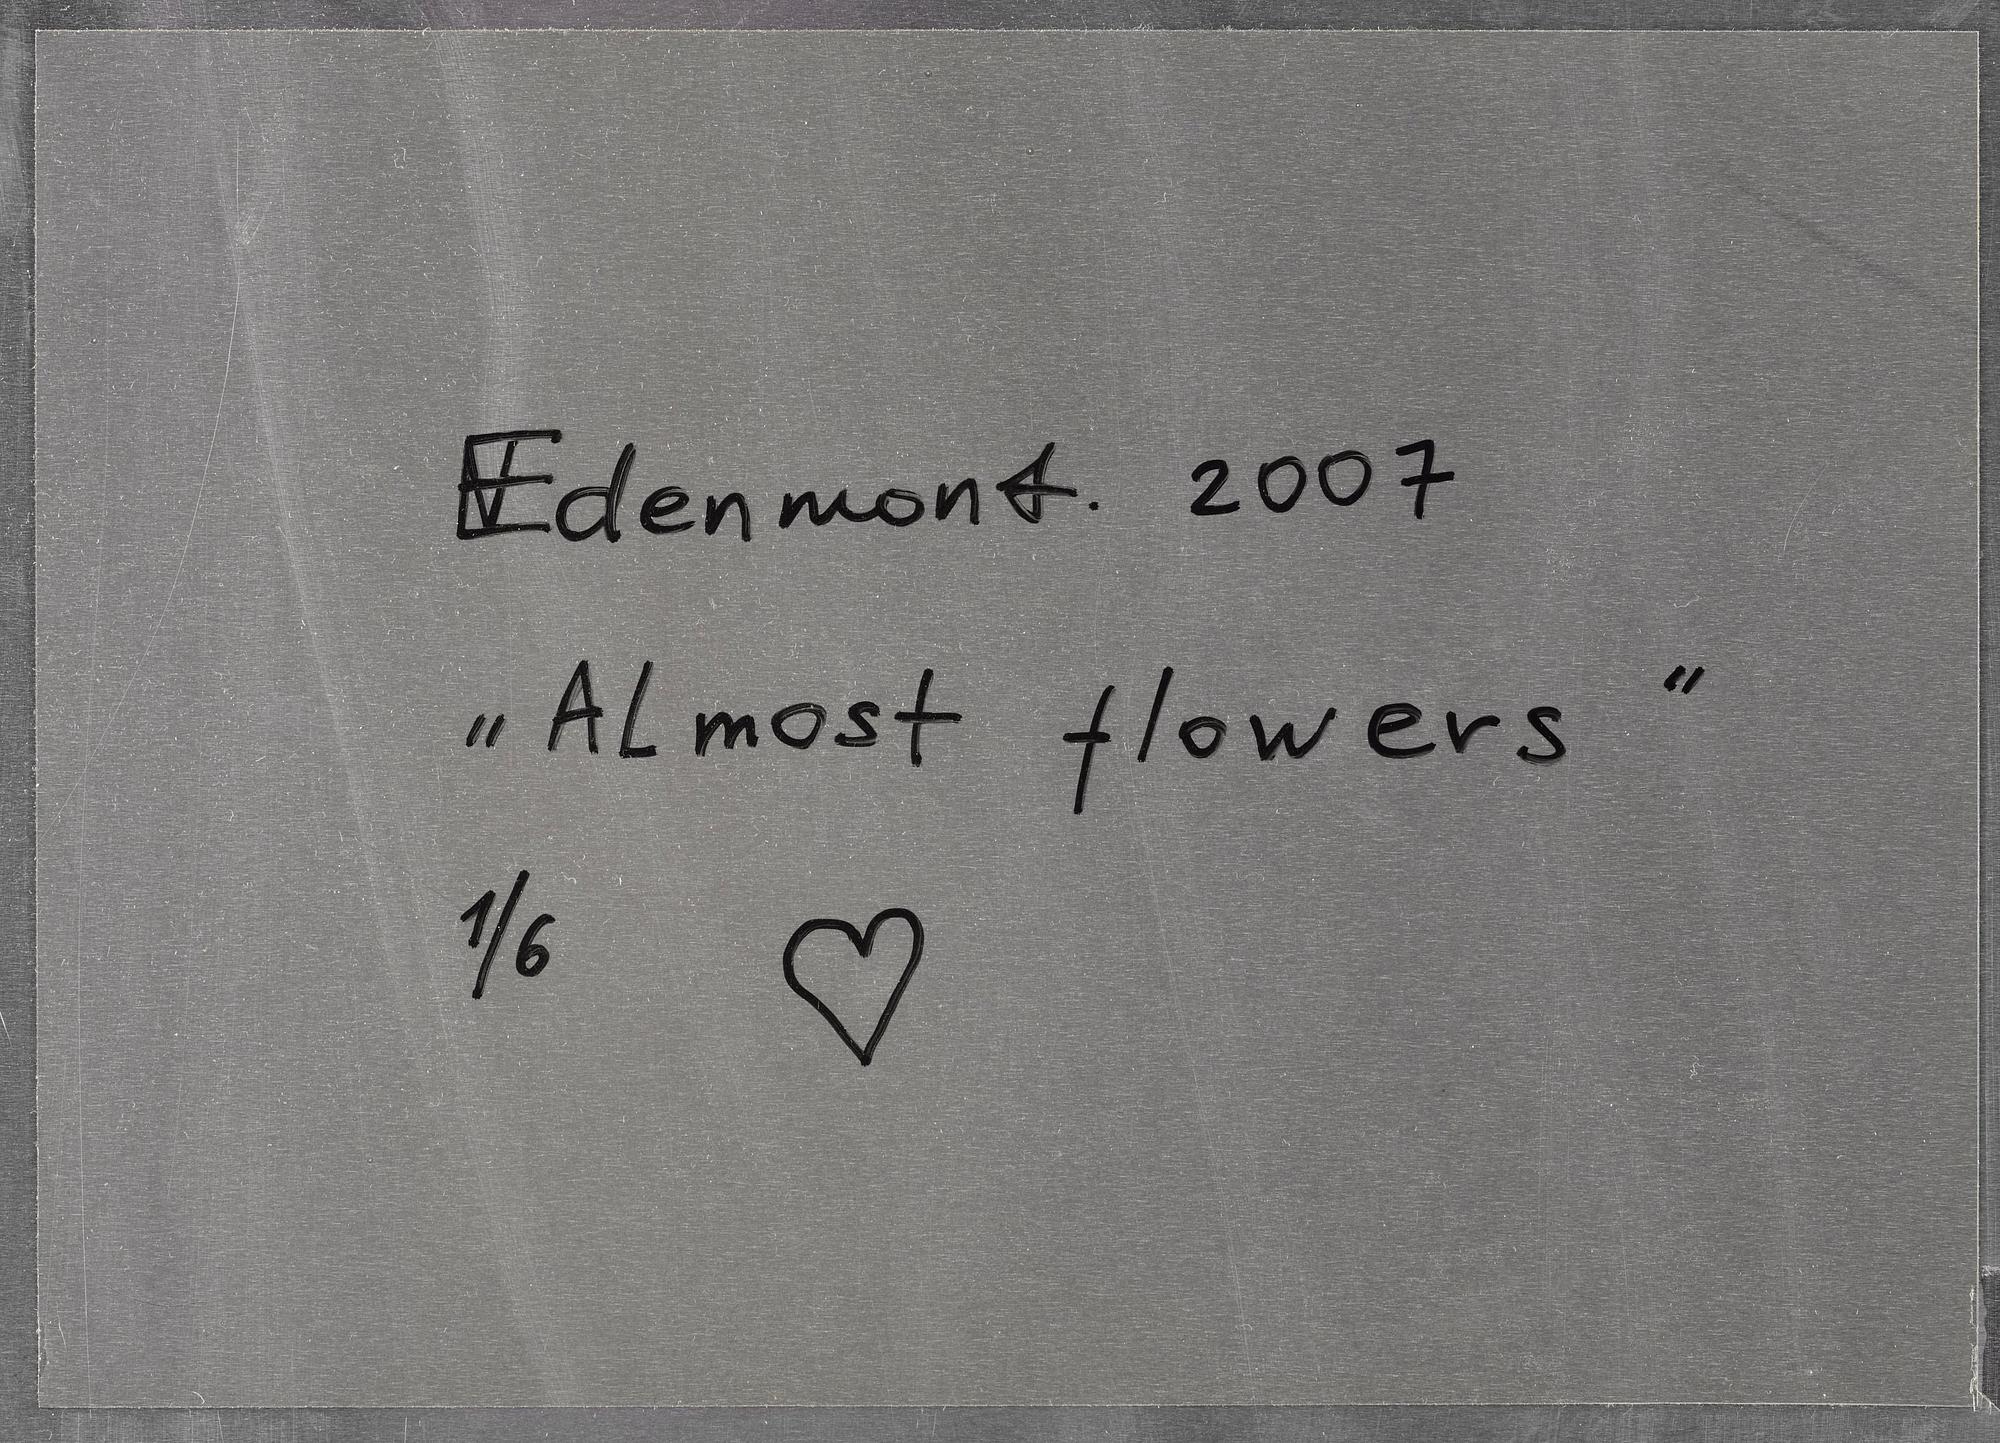 Edenmont. 2007
„ALmost flowers”
1/6 ♡